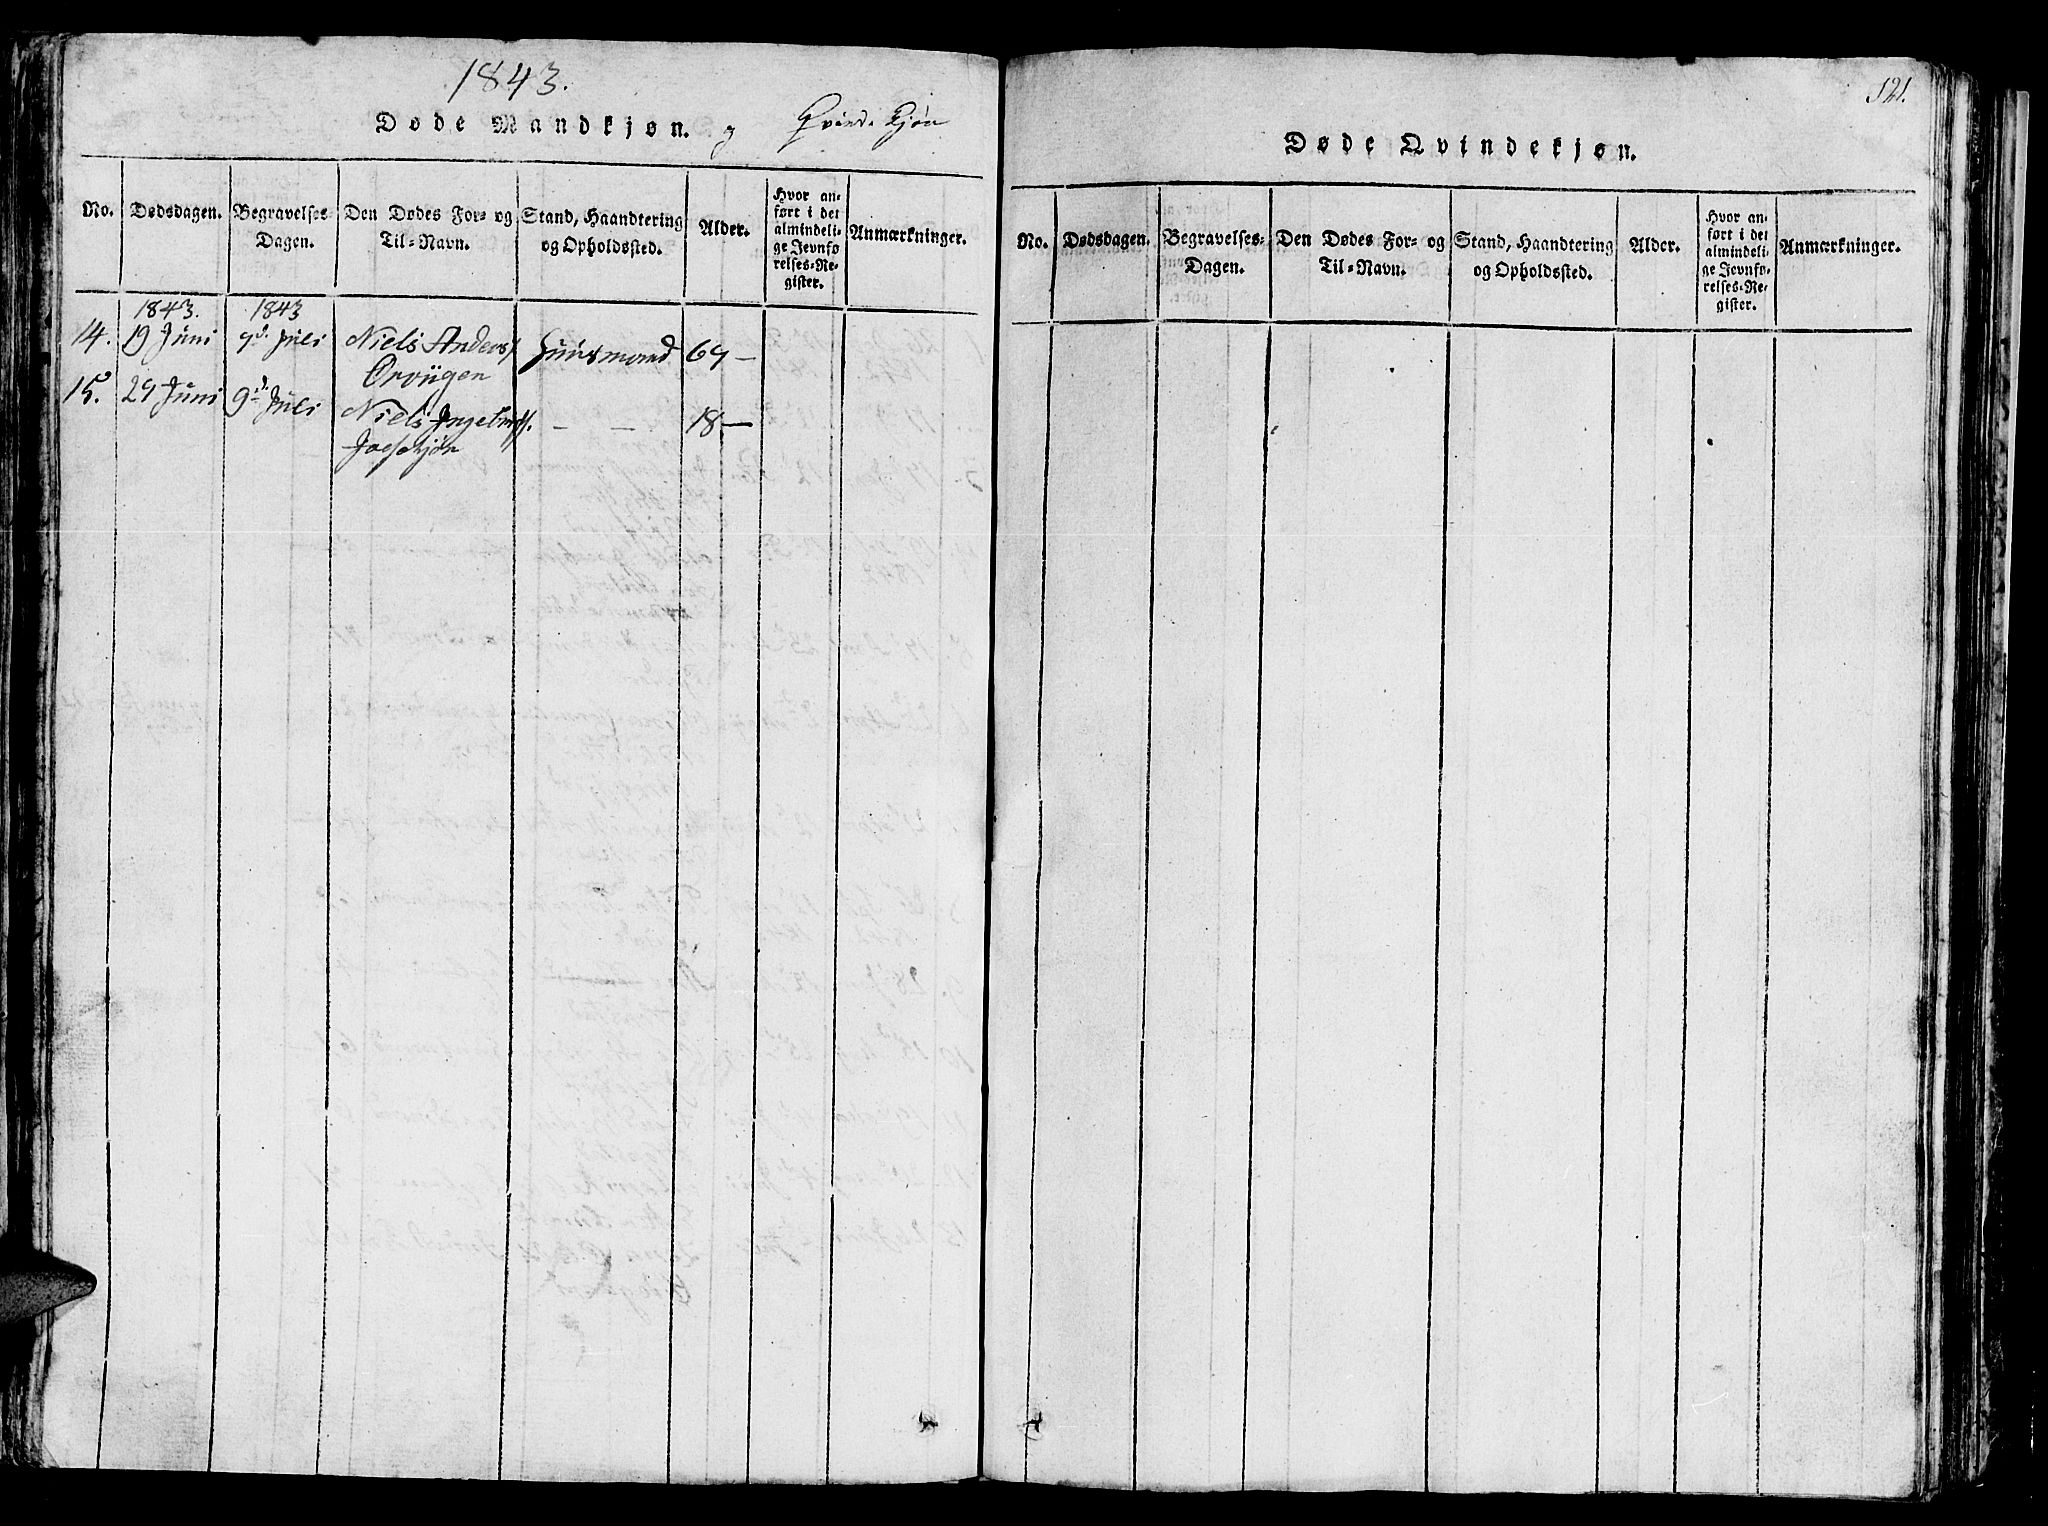 1843.
Døde Mandkjøn. og Qvindekjøn
No. Dødsdagen. Begravelses-Dagen. Den Dødes For- og Til-Navn. Stand, Haandtering og Opholdssted. Alder. Hvor anført i det almindelige Jevnførelses-Register. Anmærkninger.
1843. 1843
14. 19 Juni 9d. Juli Niels Anders/ Huusmand 69 —
Orvügen
15. 29 Juni 9d. Juli Niels — — 18 —
121.
Døde Qvindekjøn.
No. Dødsdagen. Begravelses-Dagen. Den Dødes For- og Til-Navn. Stand, Haandtering og Opholdssted. Alder. Hvor anført i det almindelige Jevnførelses-Register. Anmærkninger.